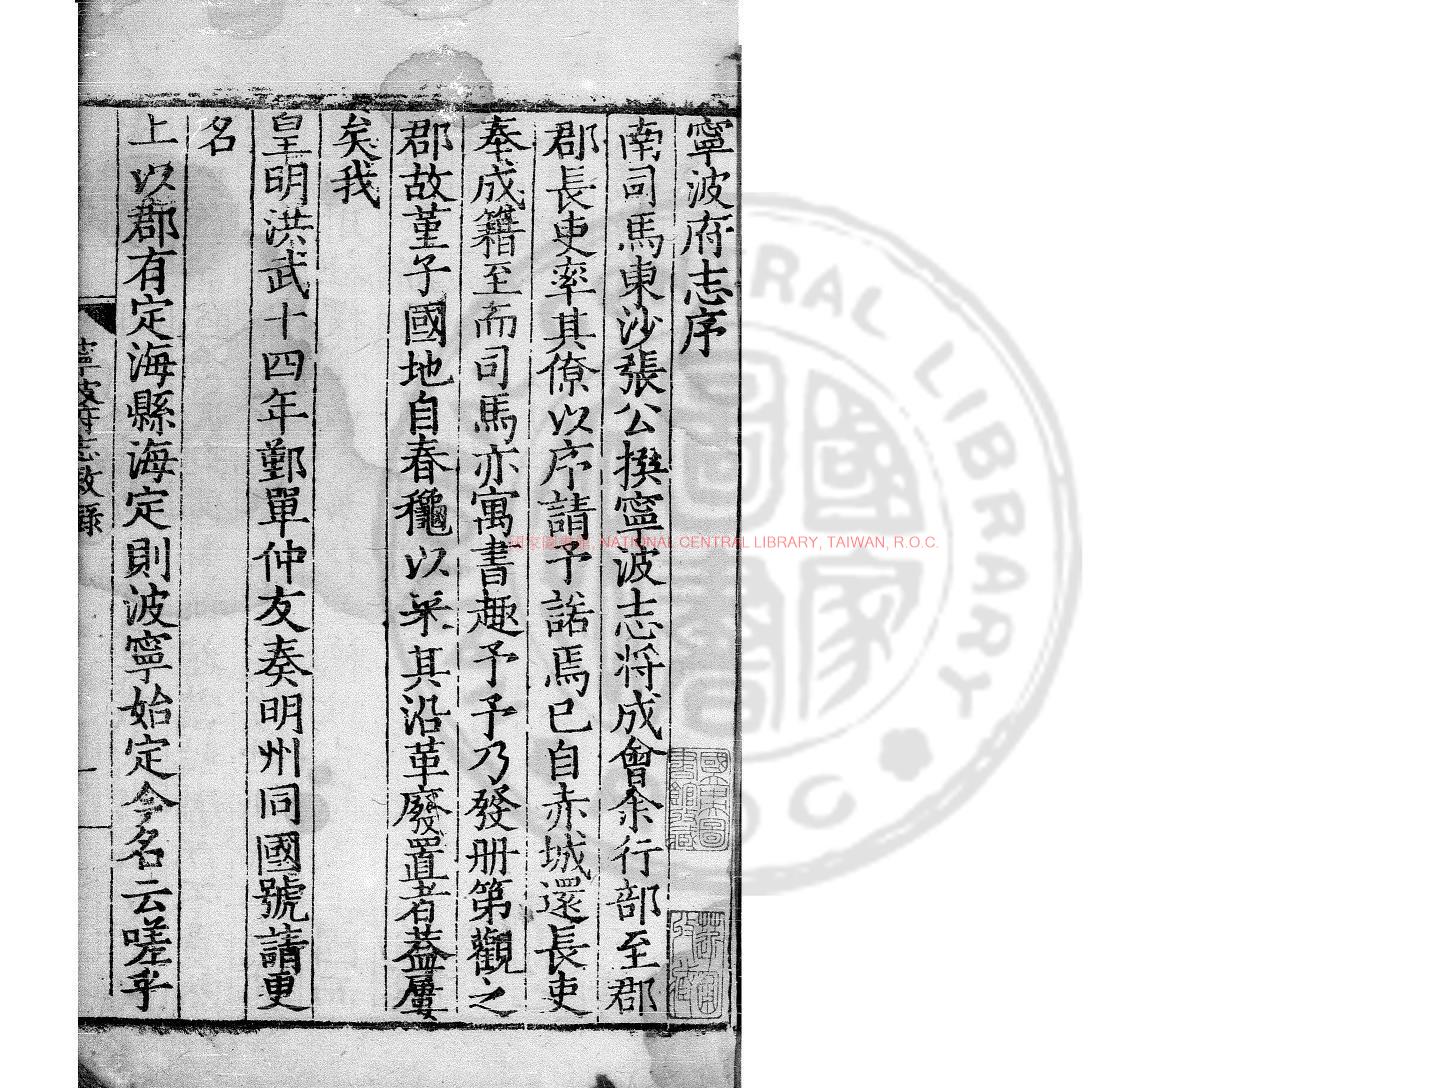 寧波府志序
南司馬東沙張公撰寧波志將成會余行部至郡
郡長吏率其僚以序請予諾焉已自赤城還長吏
奉成籍至而司馬亦寓書趣予予乃發册第觀之
郡故堇子國地自春穐以來其沿革廢置者葢屢
矣我
皇明洪武十四年鄞單仲友奏明州同國號請更
名
上以郡有定海縣海定則波寧始定今名云嗟乎
寧波府志敘錄
一
NATIONAL CENTRAL LIBRARY, TAIWAN, R.O.C.